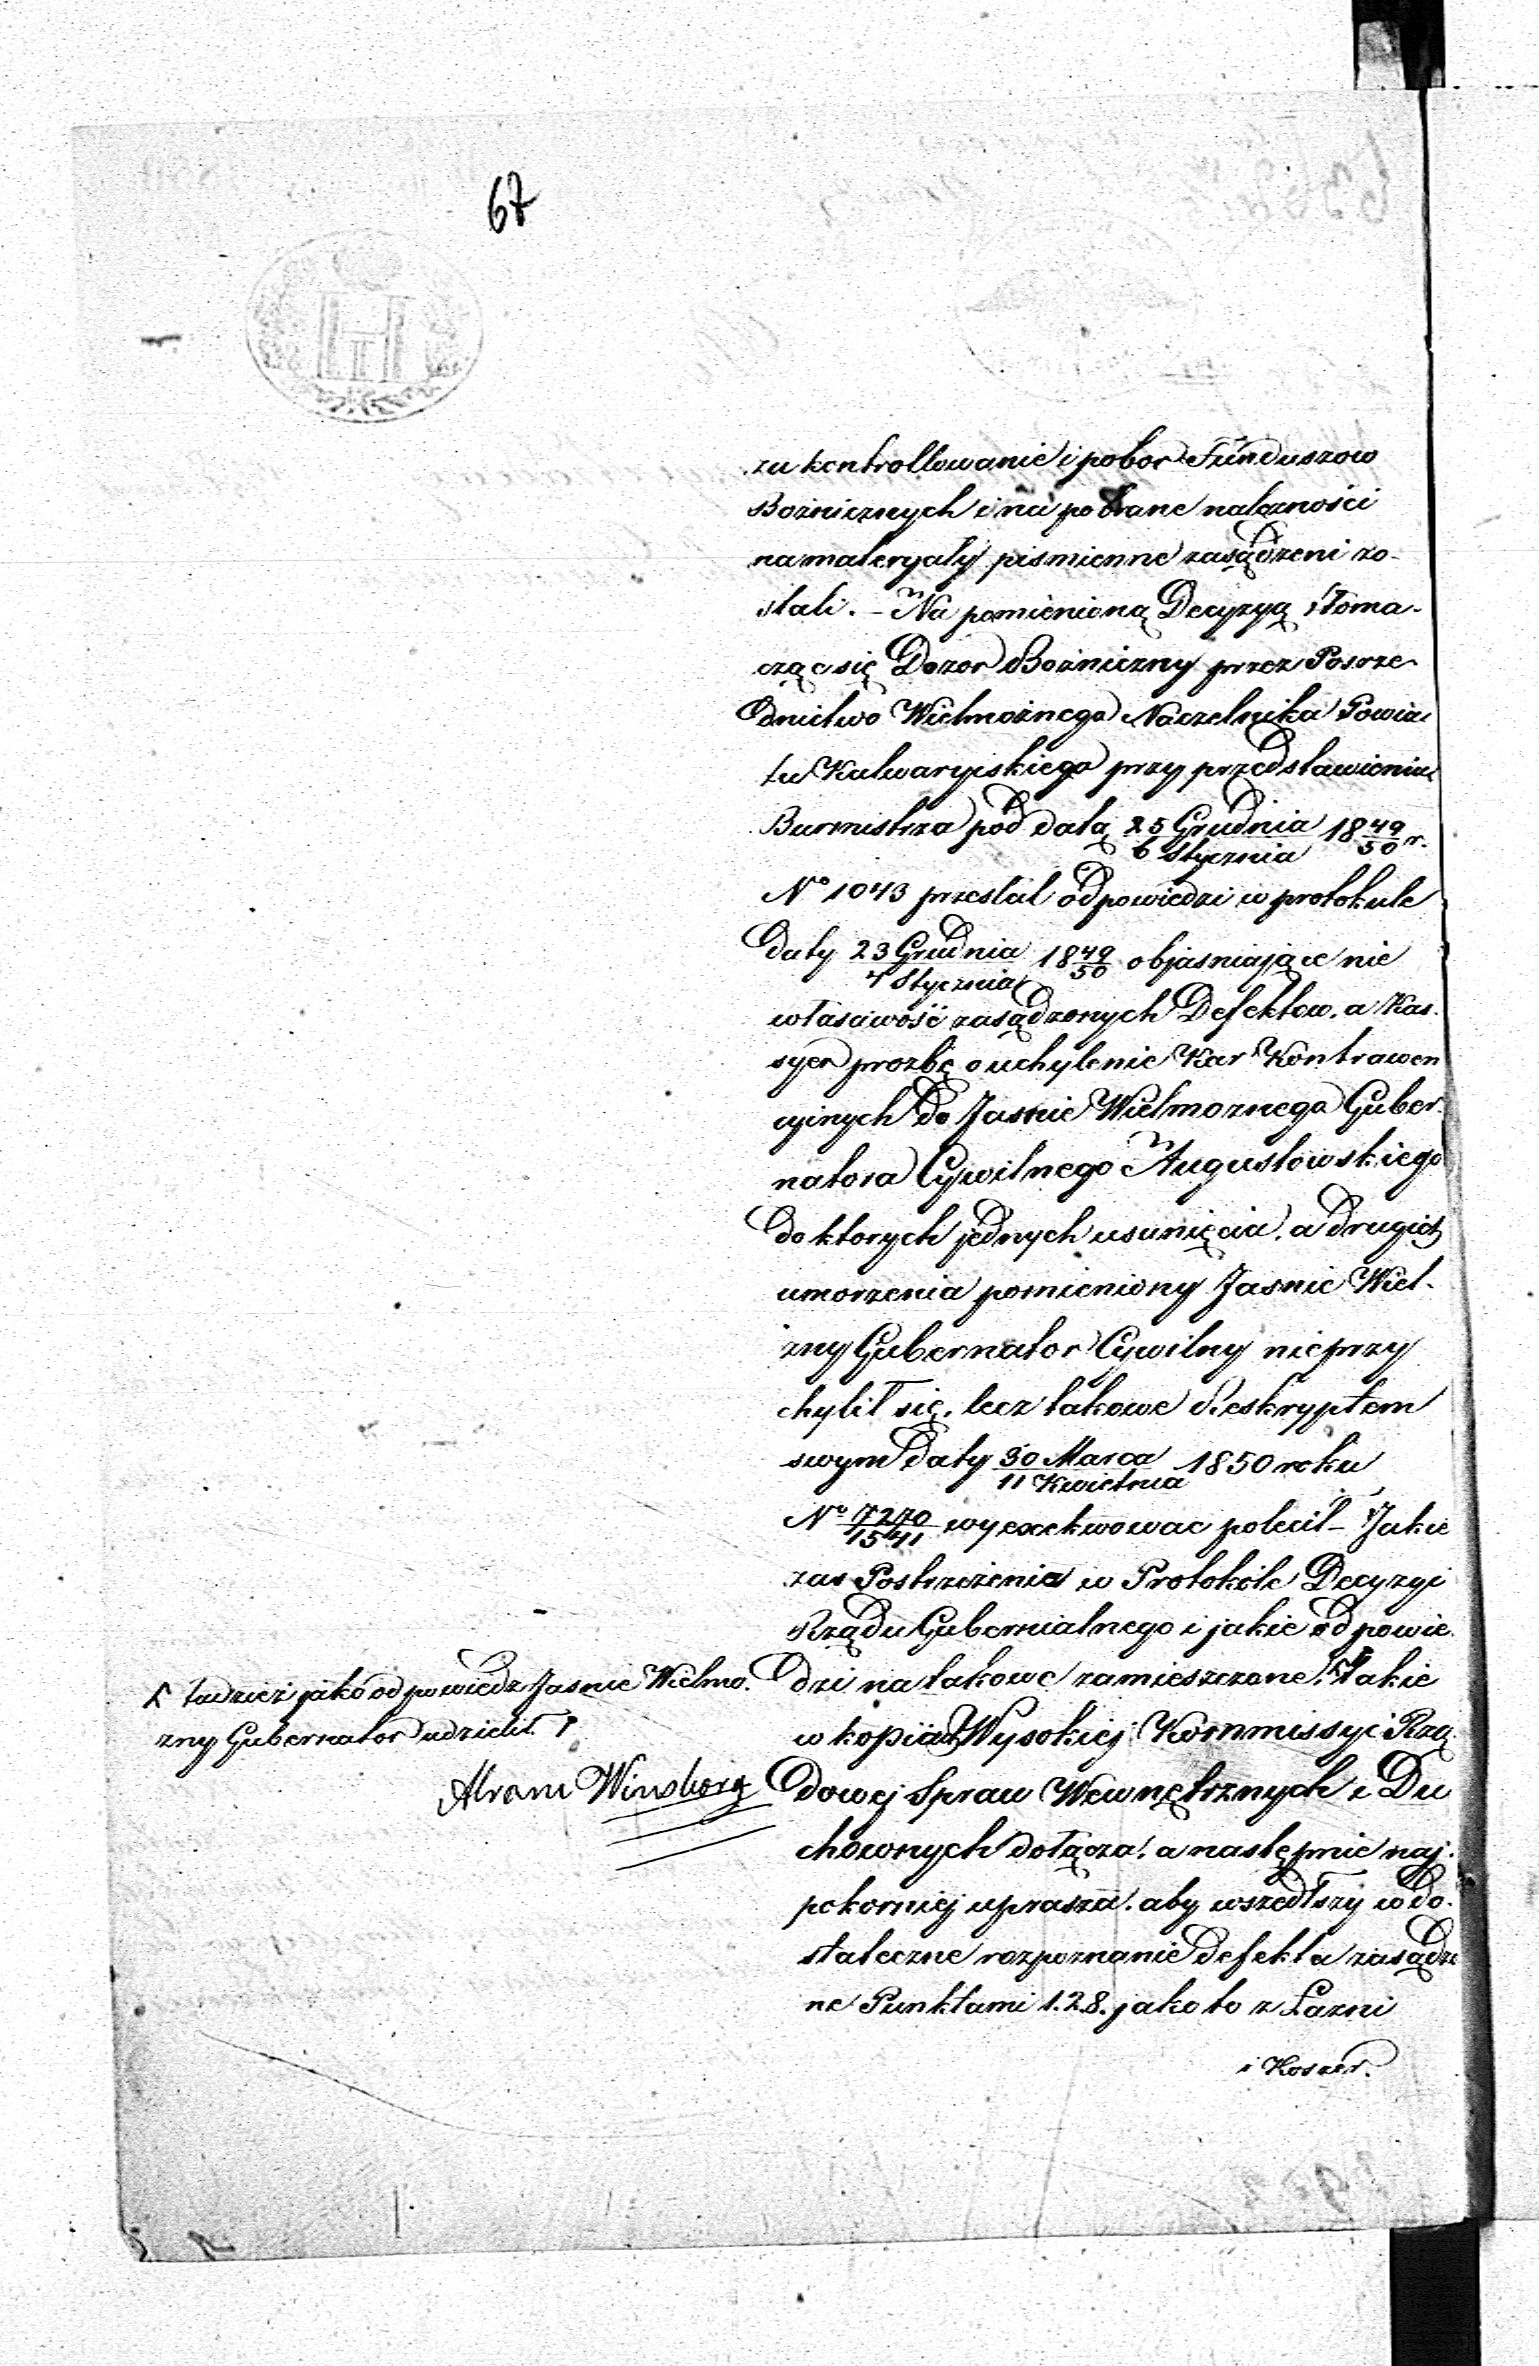 67
za kontrollowanie i pobor Funduszow
Bożnicznych i na pobrane należności
na materyały pismienne zasądzeni zo-
stali. – Na pomienioną Decyzyą tłoma-
cząc się Dozor Bożniczny przez Posrze-
dnictwo Wielmożnego Naczelnika Powia
tu Kalwaryiskiego przy przedstawieniu
Burmistrza pod datą 25 Grudnia / 6 Stycznia 18 49/50 r.
No 1043 przesłał odpowiedzi w protokule
daty 23 Grudnia / 4 Stycznia 18 49/50 objasniające nie
własciwość zasądzonych Defektow, a Kas-
syer prozbę o uchylenie Kar Kontrawen
cyinych do Jasnie Wielmoznego Guber-
natora Cywilnego Augustowskiego
do ktorych jednych usunięcia, a drugich
umorzenia pomieniony Jasnie Wiel-
zny Gubernator Cywilny nie przy
chylił się, lecz takowe Reskryptem
swym daty 30 Marca / 11 Kwietnia 1850 roku
No 7270/1541 wyexekwowac polecił – Jakie
zas Postrzeżenia w Protokóle Decyzyi
Rządu Gubernialnego i jakie odpowie-
dzi na takowe zamieszczone, takie
w kopiach Wysokiej Kommissyi Rzą
dowej Spraw Wewnętrznych i Du
chownych dołącza, a następnie naj-
pokorniej uprasza, aby wszedłszy w do-
stateczne rozpoznanie defekta zasądzo
ne Punktami 1.2.8. jako to z Łazni
i Koszer.
tudzież jako odpowiedz Jasnie Wielmo-
zny Gubernator udzielił
Abram Winsberg